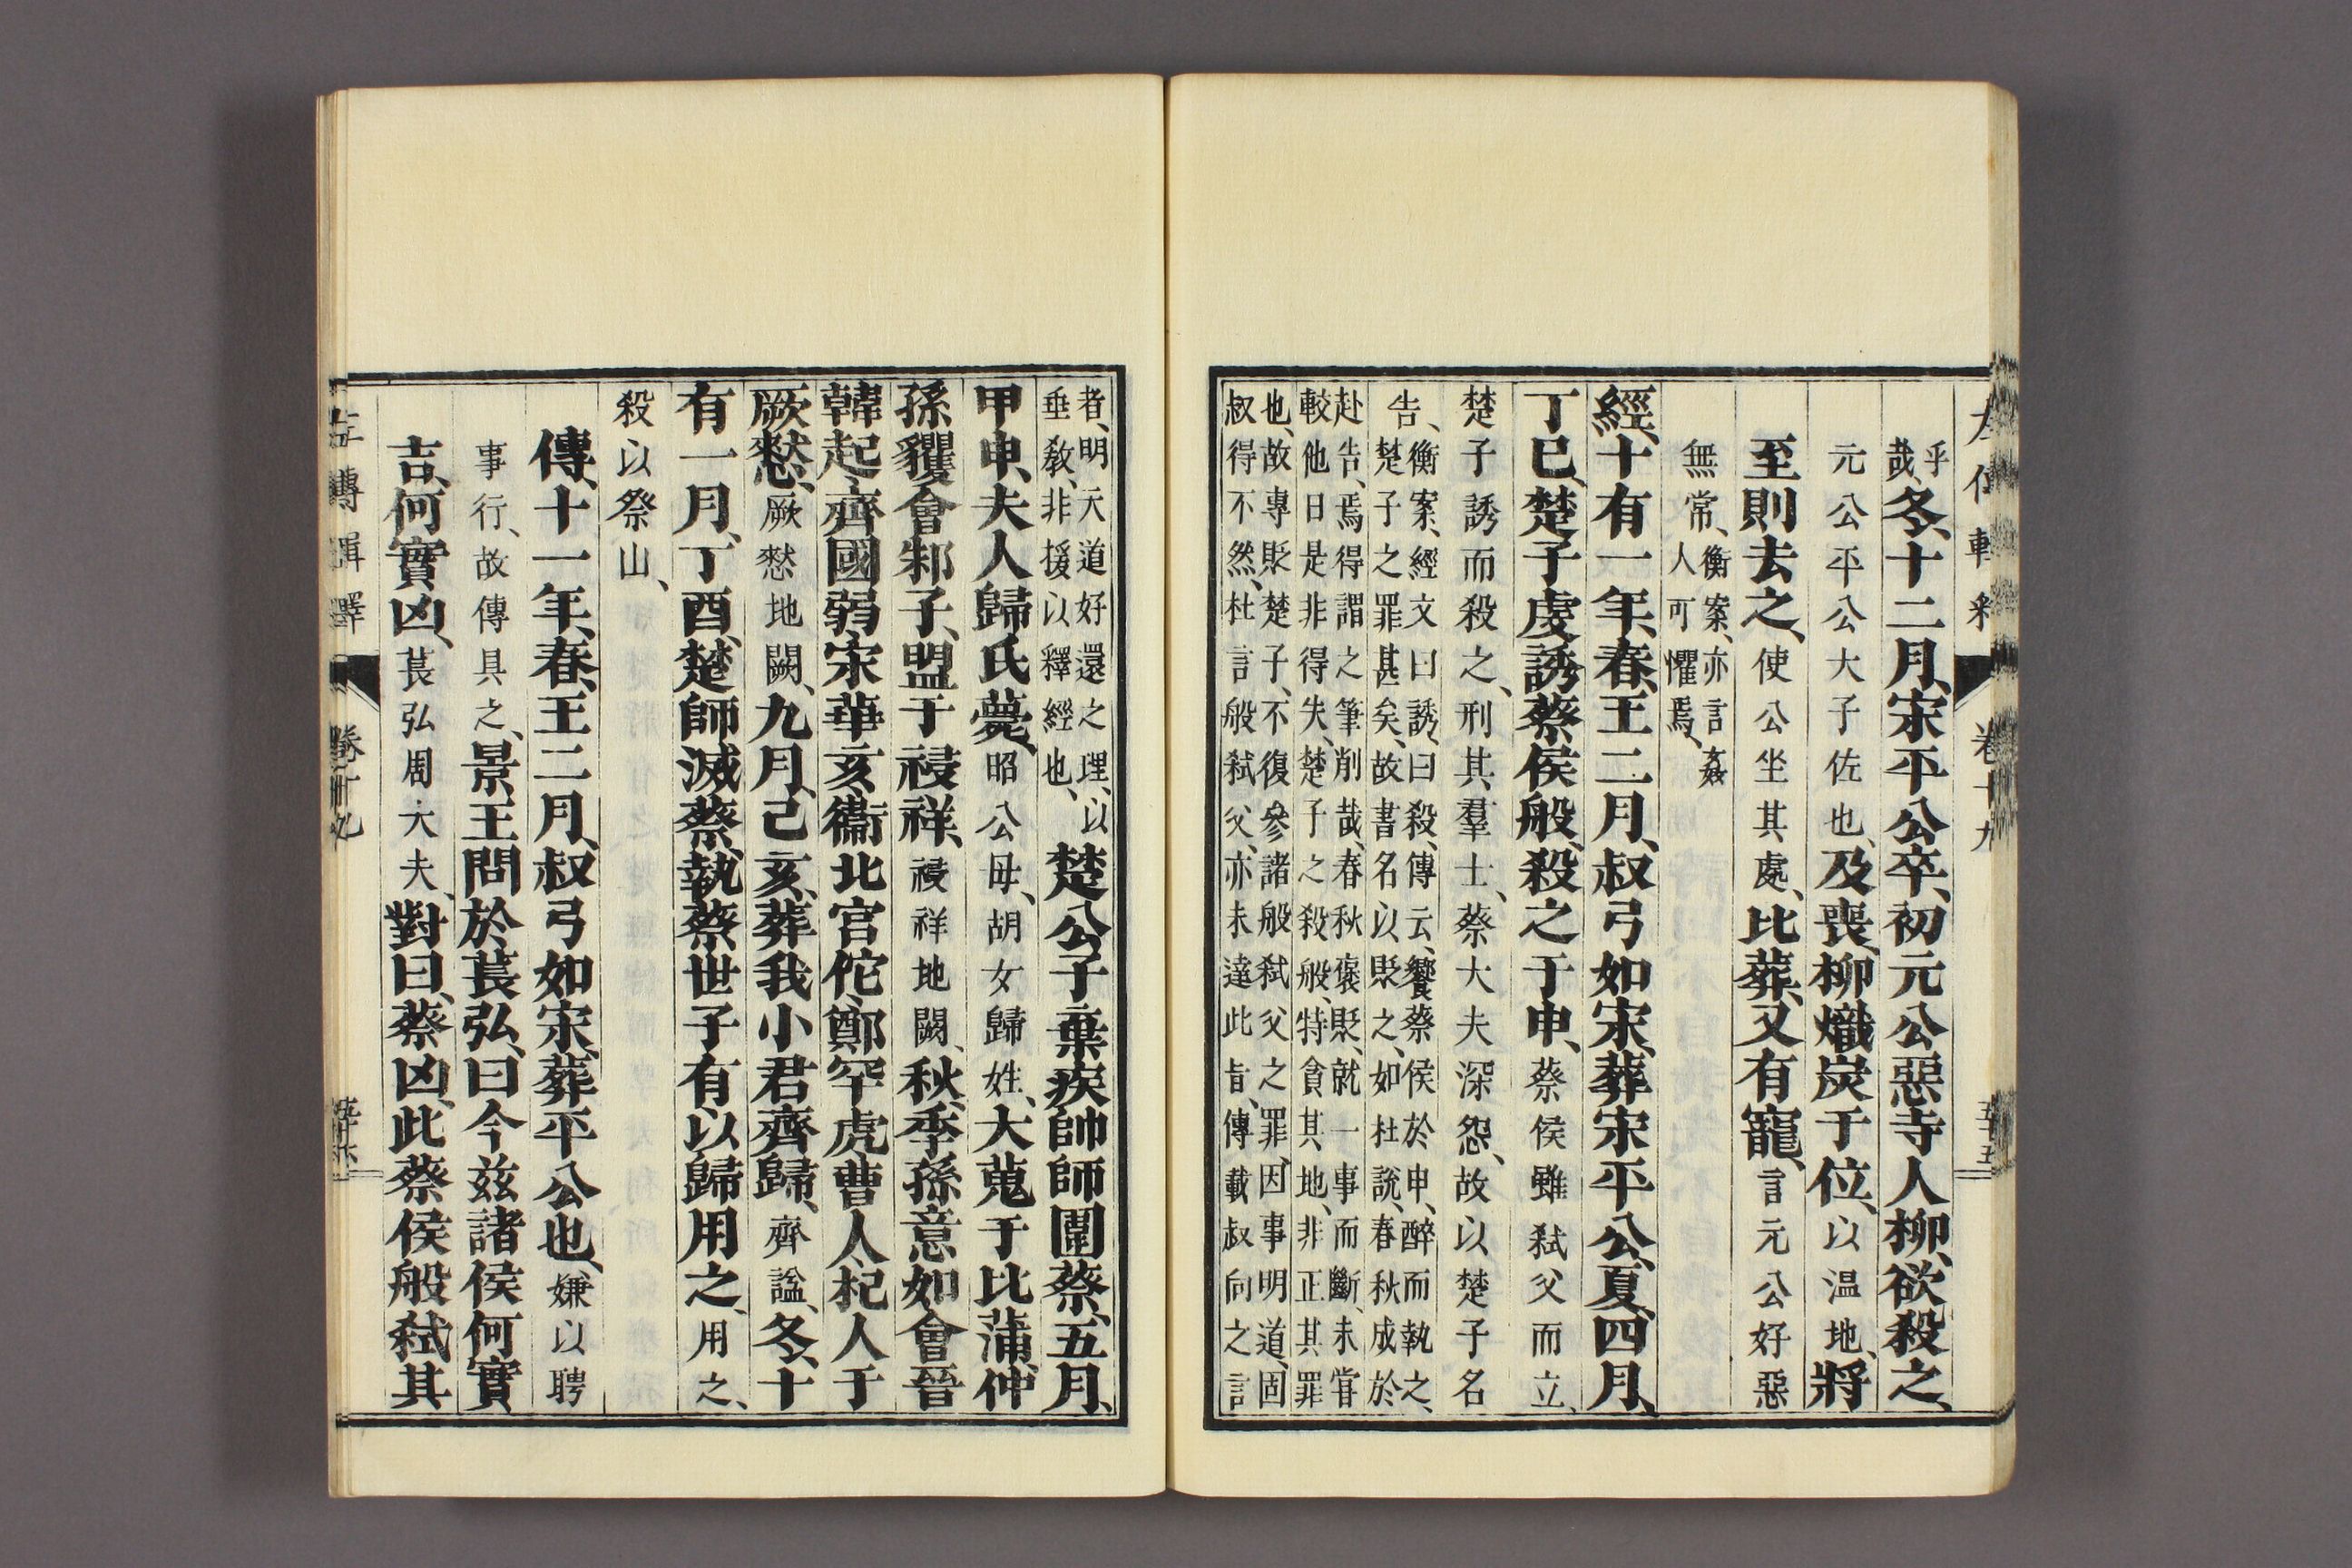 左傳輯釋 卷十九 五十五
乎哉、冬、十二月、宋平公卒、初元公惡寺人柳、欲殺之、
元公平公大子佐也、及喪、柳熾炭于位、以温地、將
至則去之、使公坐其處、比葬、又有寵、言元公好惡
無常、人可懼焉、衡案、亦言姦
經、十有一年、春、王二月、叔弓如宋、葬宋平公、夏、四月、
丁巳、楚子虔誘蔡侯般、殺之于申、蔡侯雖弑父而立、
楚子誘而殺之、刑其羣士、蔡大夫深怨、故以楚子名
告、衡案、經文曰誘、曰殺、傳云、饗蔡侯於申、醉而執之、
楚子之罪甚矣、故書名以貶之、如杜說、春秋成於
赴告、焉得謂之筆削哉、春秋褒貶、就一事而斷、未嘗
較他日是非得失、楚子之殺般、特貪其地、非正其罪
也、故專貶楚子、不復參諸般弑父之罪、因事明道、固
叔得不然、杜言般弑父、亦未達此旨、傳載叔向之言
者、明天道好還之理、以
垂敎、非援以釋經也、楚公子棄疾帥師圍蔡、五月、
甲申、夫人歸氏薨、昭公母、胡女歸姓、大蒐于比蒲、仲
孫貜會邾子、盟于祲祥、祲祥地闕、秋、季孫意如會晉
韓起、齊國弱、宋華亥、衞北宮佗、鄭罕虎、曹人、杞人于
厥憖、厥憖地闕、九月、己亥、葬我小君齊歸、齊謚、冬、十
有一月、丁酉、楚師滅蔡、執蔡世子有以歸用之、用之、
殺以祭山、
傳、十一年、春、王二月、叔弓如宋、葬平公也、嫌以聘
事行、故傳具之、景王問於萇弘、曰今茲諸侯何實
吉、何實凶、萇弘周大夫、對曰、蔡凶、此蔡侯般弑其
左傳輯釋 卷十九